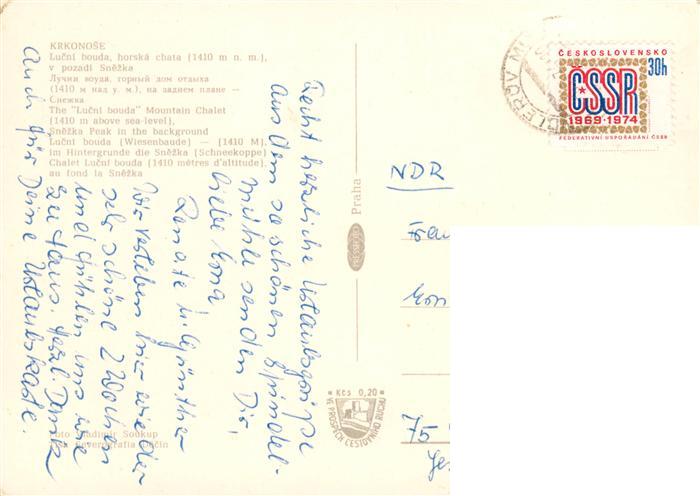 KRKONOŠE
Luční bouda, horská chata (1410 m n. m.),
v pozadí Sněžka
Лучни воуда, горный дом отдыха
(1410 м над у. м.), на заднем плане —
Снежка
The "Luční bouda" Mountain Chalet
(1410 m above sea-level),
Sněžka Peak in the background
Luční bouda (Wiesenbaude) — (1410 M),
im Hintergrunde die Sněžka (Schneekoppe)
Chalet Luční bouda (1410 mètres d'altitude),
au fond la Sněžka
Recht herzliche Urlaubsgrüße
aus dem so schönen Spindel-
mühle senden Dir,
liebe Erna
Renate u. Günther
Wir verleben hier wieder
sehr schöne 2 Wochen
und fühlen uns wie
zu Haus. Herzl. Dank
auch für Deine Urlaubskarte.
Foto Vladimír Soukup
Tisk Severografia Děčín
PRESSFOTO Praha
Kčs 0,20
VE PROSPĚCH CESTOVNÍHO RUCHU
ČESKOSLOVENSKO
30h
ČSSR
1969-1974
FEDERATIVNÍ USPOŘÁDÁNÍ ČSSR
NDR
Frau
75